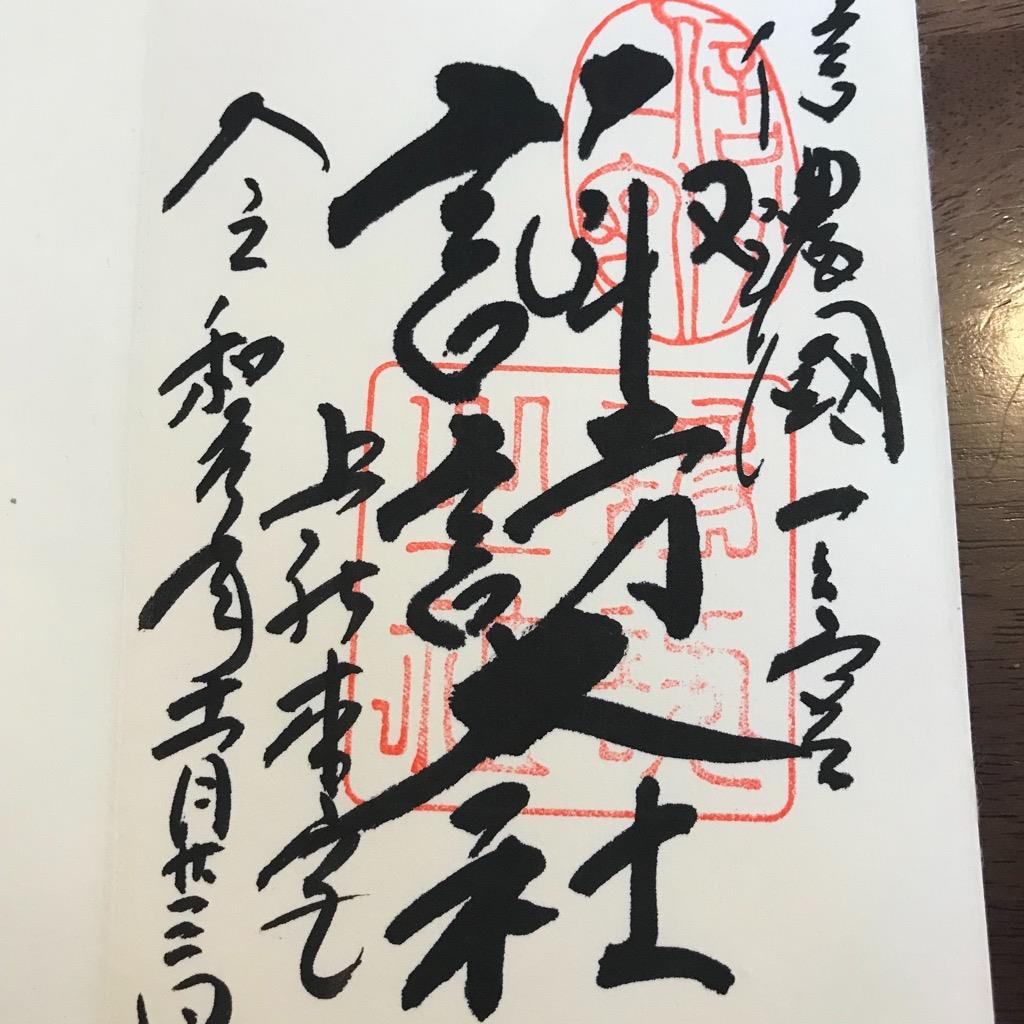 信濃國一之宮
諏訪大社
上社本宮
令和参年五月廿三日